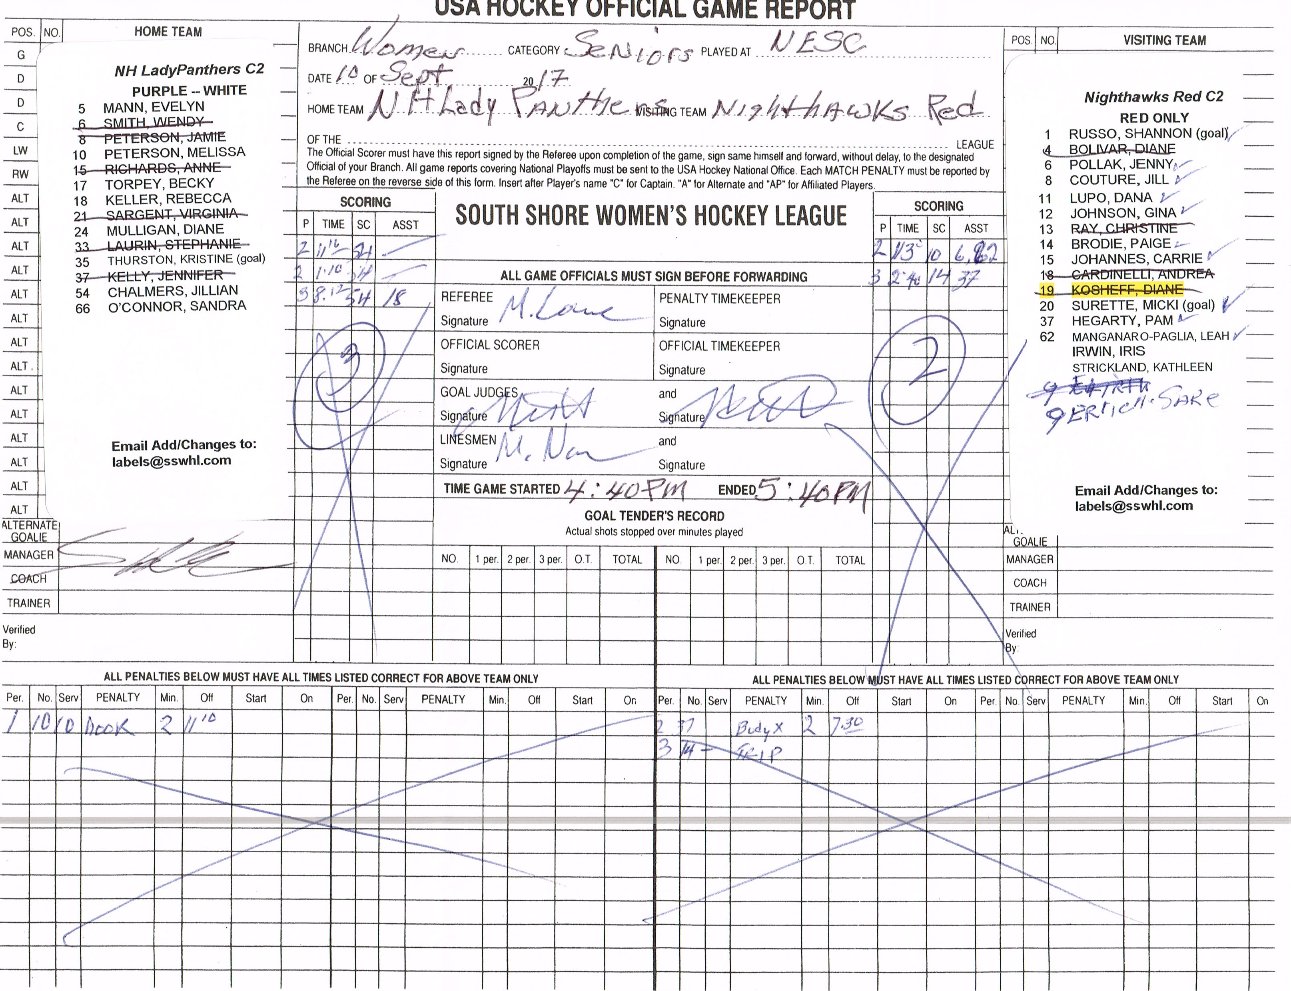 USA HOCKEY OFFICIAL GAME REPORT
POS. NO. HOME TEAM
G
D
D
C
LW
RW
ALT
ALT
ALT
ALT
ALT
ALT
ALT
ALT
ALT
ALT
ALT
ALT
ALT
ALT
ALTERNATE GOALIE
MANAGER
COACH
TRAINER
Verified By:
NH LadyPanthers C2
PURPLE -- WHITE
5 MANN, EVELYN
6 SMITH, WENDY
8 PETERSON, JAMIE
10 PETERSON, MELISSA
15 RICHARDS, ANNE
17 TORPEY, BECKY
18 KELLER, REBECCA
21 SARGENT, VIRGINIA
24 MULLIGAN, DIANE
33 LAURIN, STEPHANIE
35 THURSTON, KRISTINE (goal)
37 KELLY, JENNIFER
54 CHALMERS, JILLIAN
66 O'CONNOR, SANDRA
Email Add/Changes to:
labels@sswhl.com
BRANCH Women CATEGORY Seniors PLAYED AT NESC
DATE 10 OF Sept 2017
HOME TEAM NH Lady PANTHERS VISITING TEAM NIGHTHAWKS Red
OF THE LEAGUE
The Official Scorer must have this report signed by the Referee upon completion of the game, sign same himself and forward, without delay, to the designated
Official of your Branch. All game reports covering National Playoffs must be sent to the USA Hockey National Office. Each MATCH PENALTY must be reported by
the Referee on the reverse side of this form. Insert after Player's name "C" for Captain. "A" for Alternate and "AP" for Affiliated Players.
SCORING
P TIME SC ASST
2 11 16
2 1.10 54
3 8.12 54 18
3
SOUTH SHORE WOMEN'S HOCKEY LEAGUE
ALL GAME OFFICIALS MUST SIGN BEFORE FORWARDING
REFEREE PENALTY TIMEKEEPER
Signature Signature
OFFICIAL SCORER OFFICIAL TIMEKEEPER
Signature Signature
GOAL JUDGES and
Signature Signature
LINESMEN and
Signature Signature
TIME GAME STARTED 4:40 PM ENDED 5:40 PM
GOAL TENDER'S RECORD
Actual shots stopped over minutes played
NO. 1 per. 2 per. 3 per. O.T. TOTAL NO. 1 per. 2 per. 3 per. O.T. TOTAL
SCORING
P TIME SC ASST
2 10 6, 62
3 14 37
2
POS NO. VISITING TEAM
Nighthawks Red C2
RED ONLY
1 RUSSO, SHANNON (goal)
4 BOLIVAR, DIANE
6 POLLAK, JENNY
8 COUTURE, JILL
11 LUPO, DANA
12 JOHNSON, GINA
13 RAY, CHRISTINE
14 BRODIE, PAIGE
15 JOHANNES, CARRIE
18 CARDINELLI, ANDREA
19 KOSHEFF, DIANE
20 SURETTE, MICKI (goal)
37 HEGARTY, PAM
62 MANGANARO-PAGLIA, LEAH
IRWIN, IRIS
STRICKLAND, KATHLEEN
9
9
Email Add/Changes to:
labels@sswhl.com
AL.
GOALIE
MANAGER
COACH
TRAINER
Verified By:
ALL PENALTIES BELOW MUST HAVE ALL TIMES LISTED CORRECT FOR ABOVE TEAM ONLY
Per. No. Serv PENALTY Min. Off Start On Per. No. Serv PENALTY Min. Off Start On
1 10 10 2 11 10
ALL PENALTIES BELOW MUST HAVE ALL TIMES LISTED CORRECT FOR ABOVE TEAM ONLY
Per. No. Serv PENALTY Min. Off Start On Per. No. Serv PENALTY Min. Off Start On
2 37 Body X 2 7.30
3 14 - TRIP